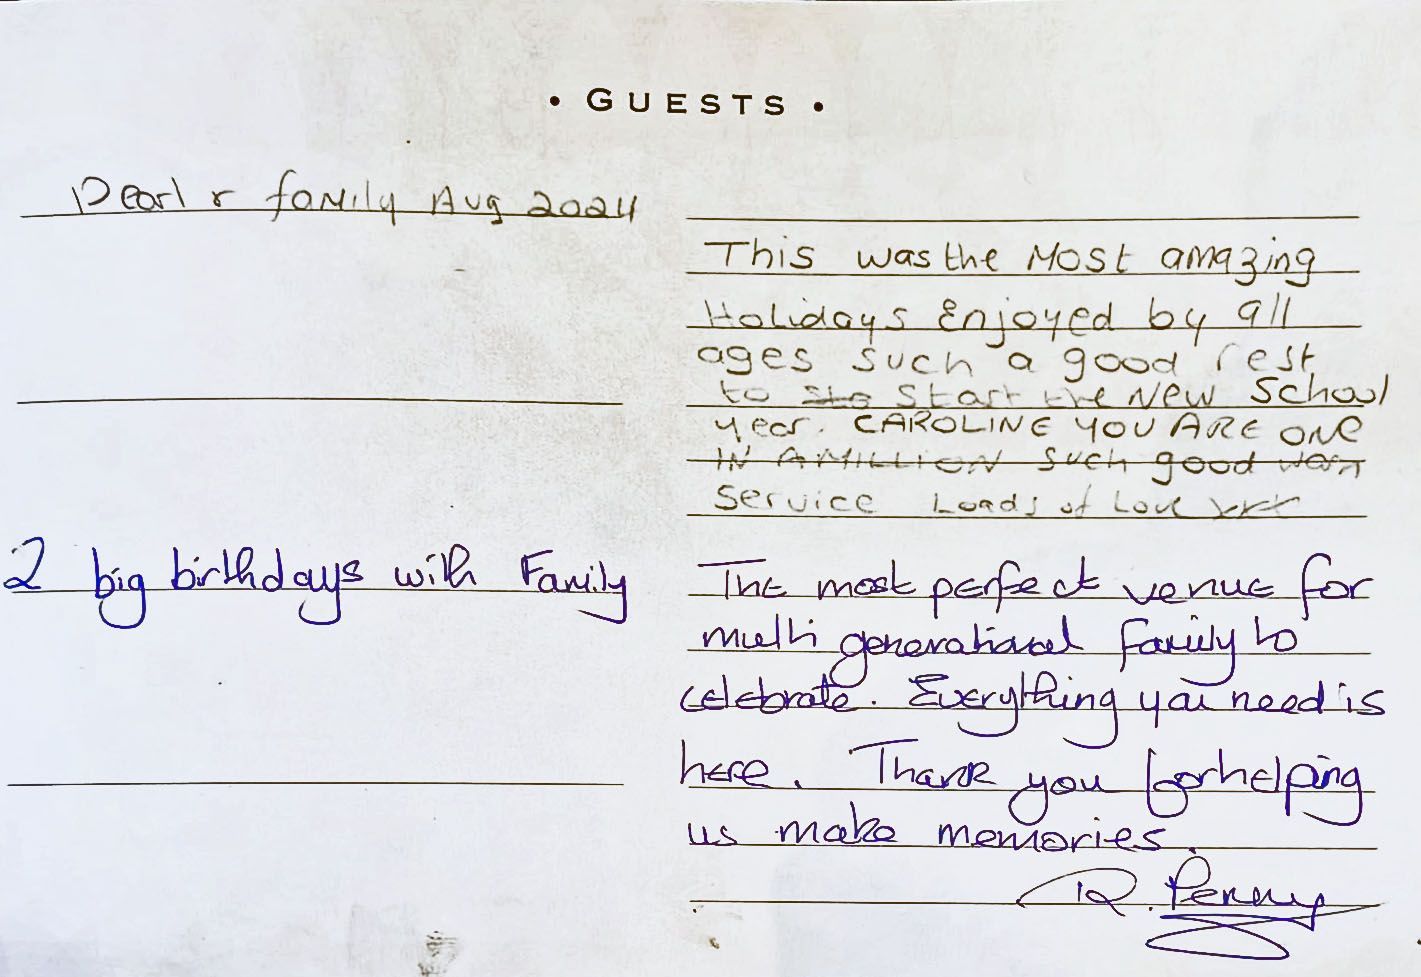 • GUESTS •
Pearl & family Aug 2024
This was the Most amazing
Holidays Enjoyed by all
ages such a good rest
to start the New School
year. CAROLINE YOU ARE ONE
IN A MILLION Such good
Service Loads of Love xxx
2 big birthdays with Family
The most perfect venue for
multi generational family to
celebrate. Everything you need is
here. Thank you for helping
us make memories.
R. Penny